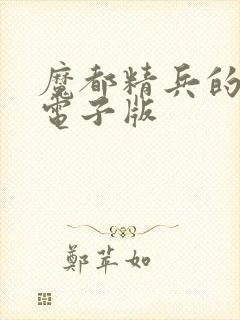 魔都精兵的
電子版
鄭苹如